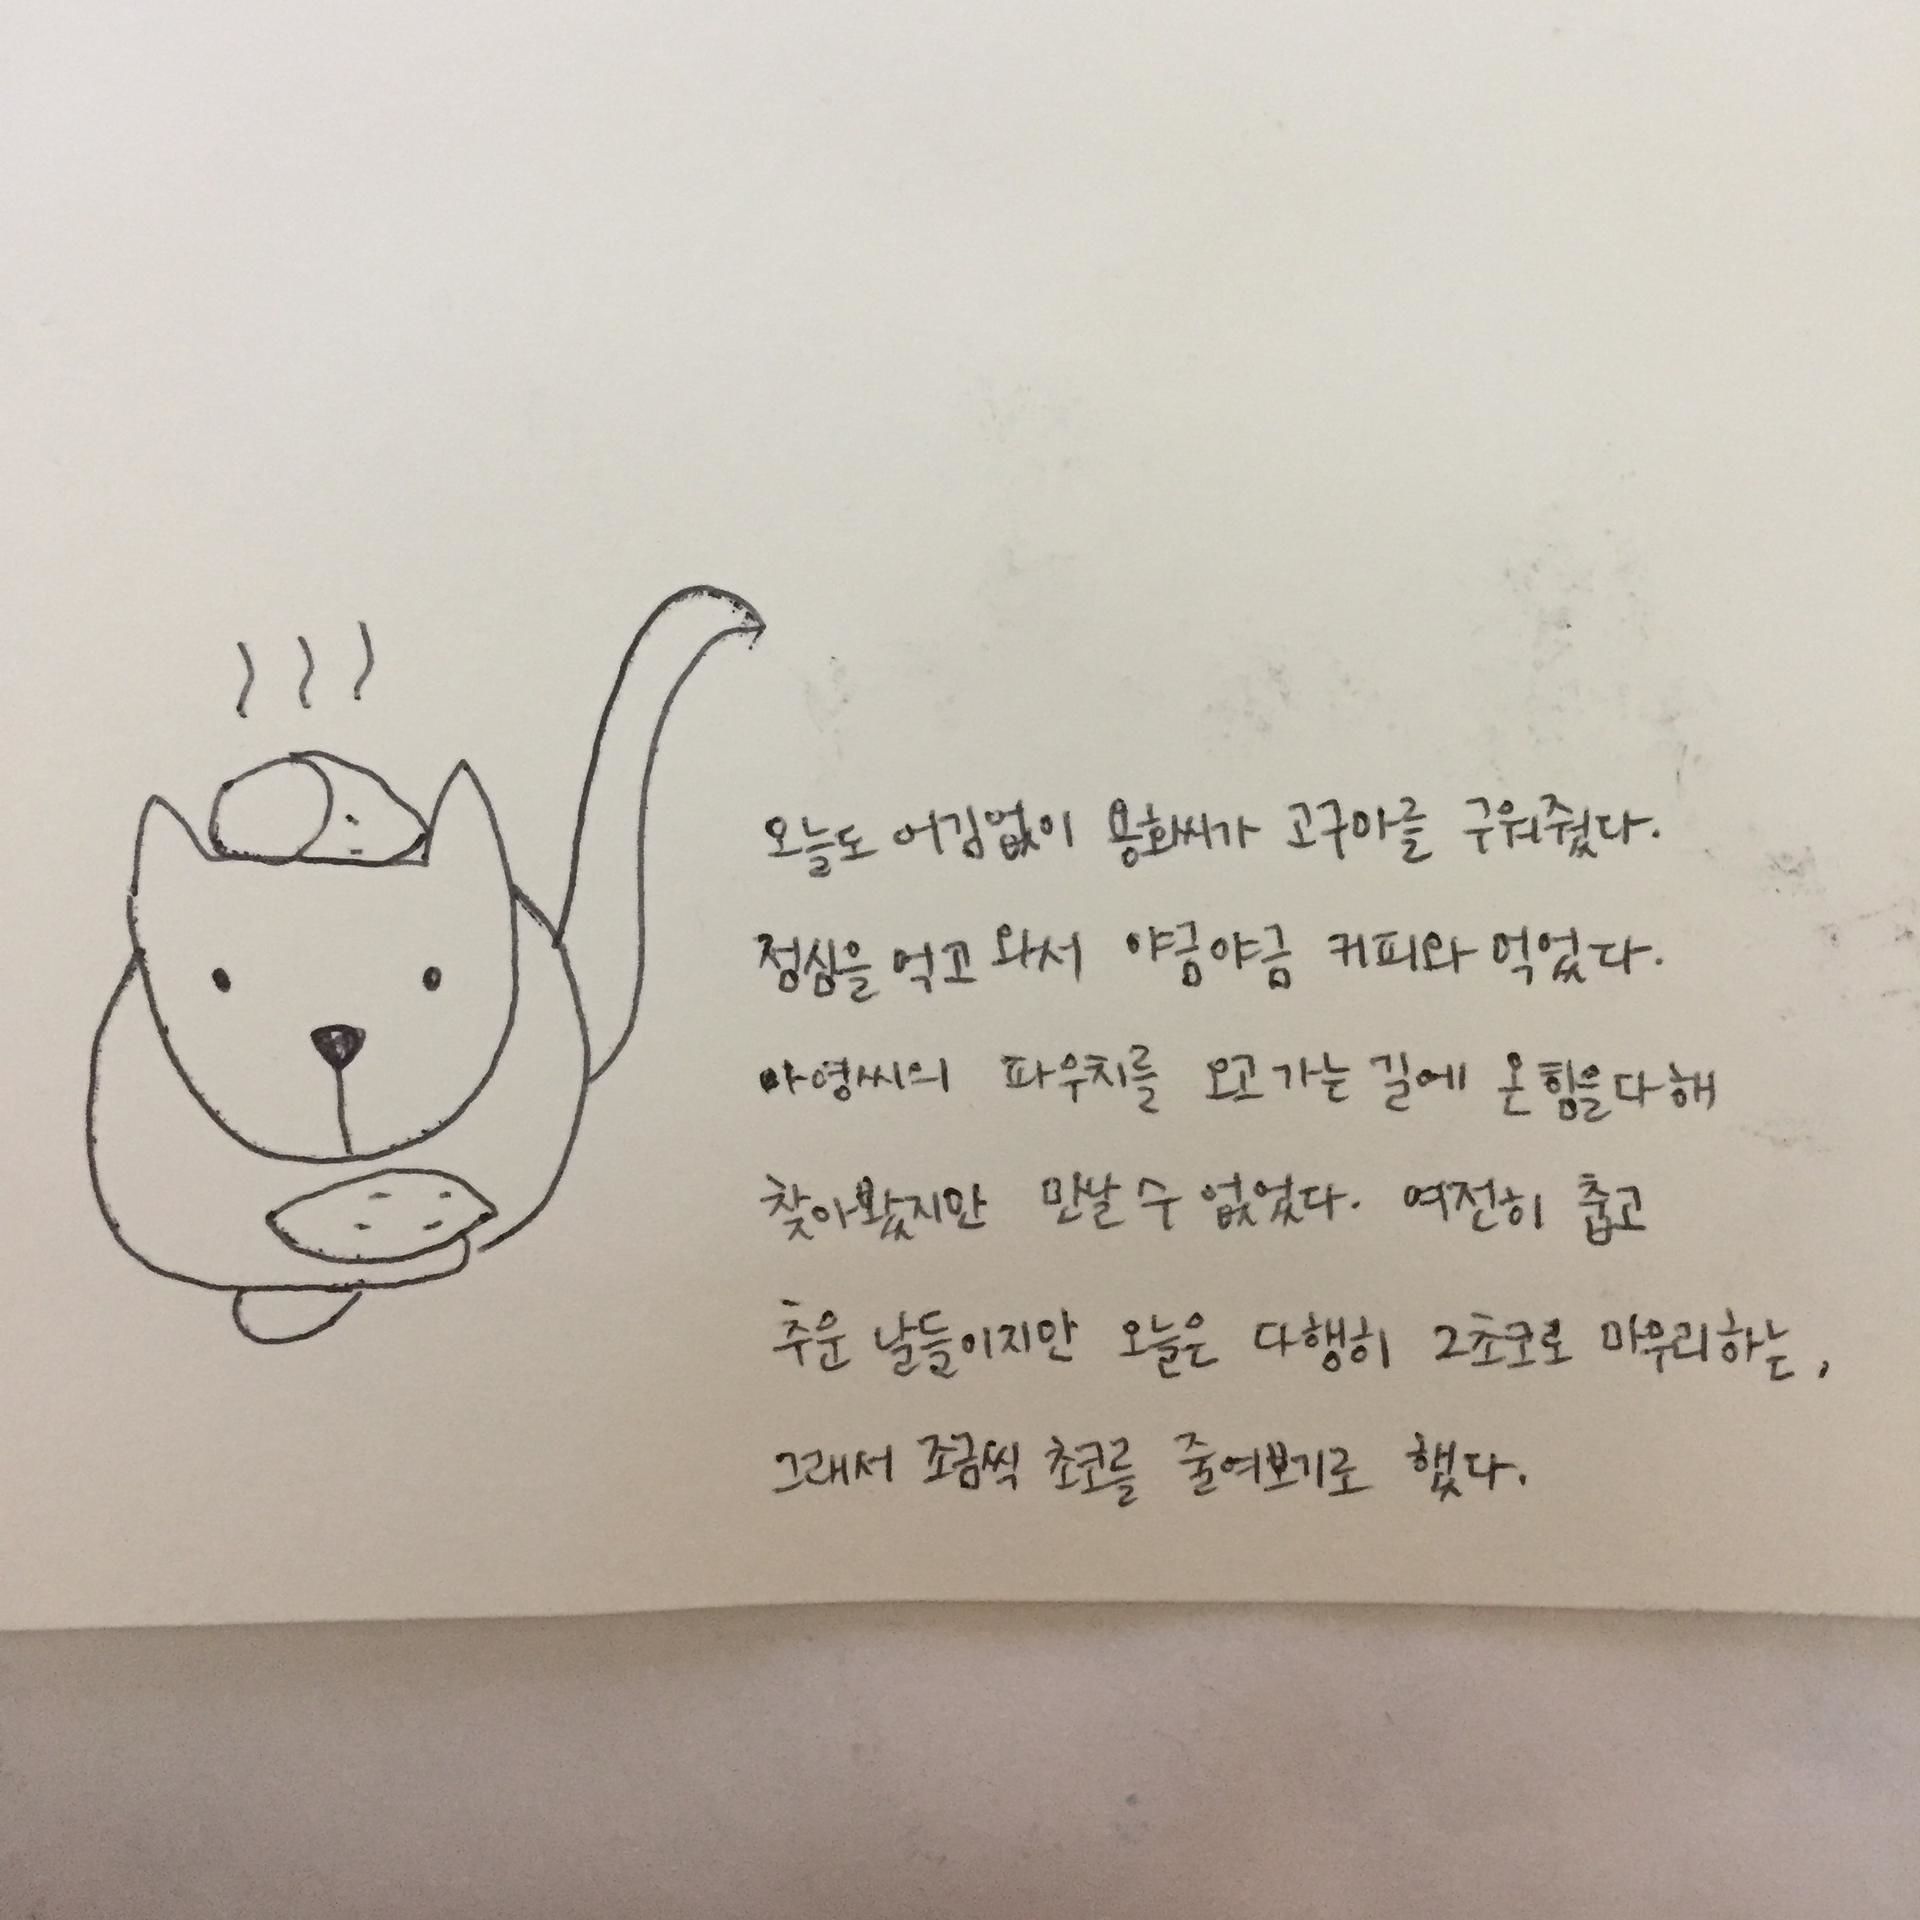 오늘도 어김없이 용화씨가 고구마를 구워줬다.
점심을 먹고 와서 야금야금 커피와 먹었다.
아영씨의 파우치를 오고가는 길에 온힘을다해
찾아봤지만 만날 수 없었다. 여전히 춥고
추운 날들이지만 오늘은 다행히 2초코로 마무리하는,
그래서 조금씩 초코를 줄여보기로 했다.